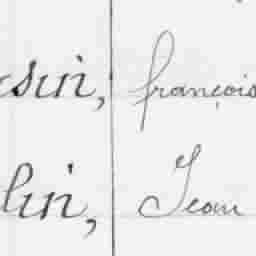 sin, françois
lin, Jean